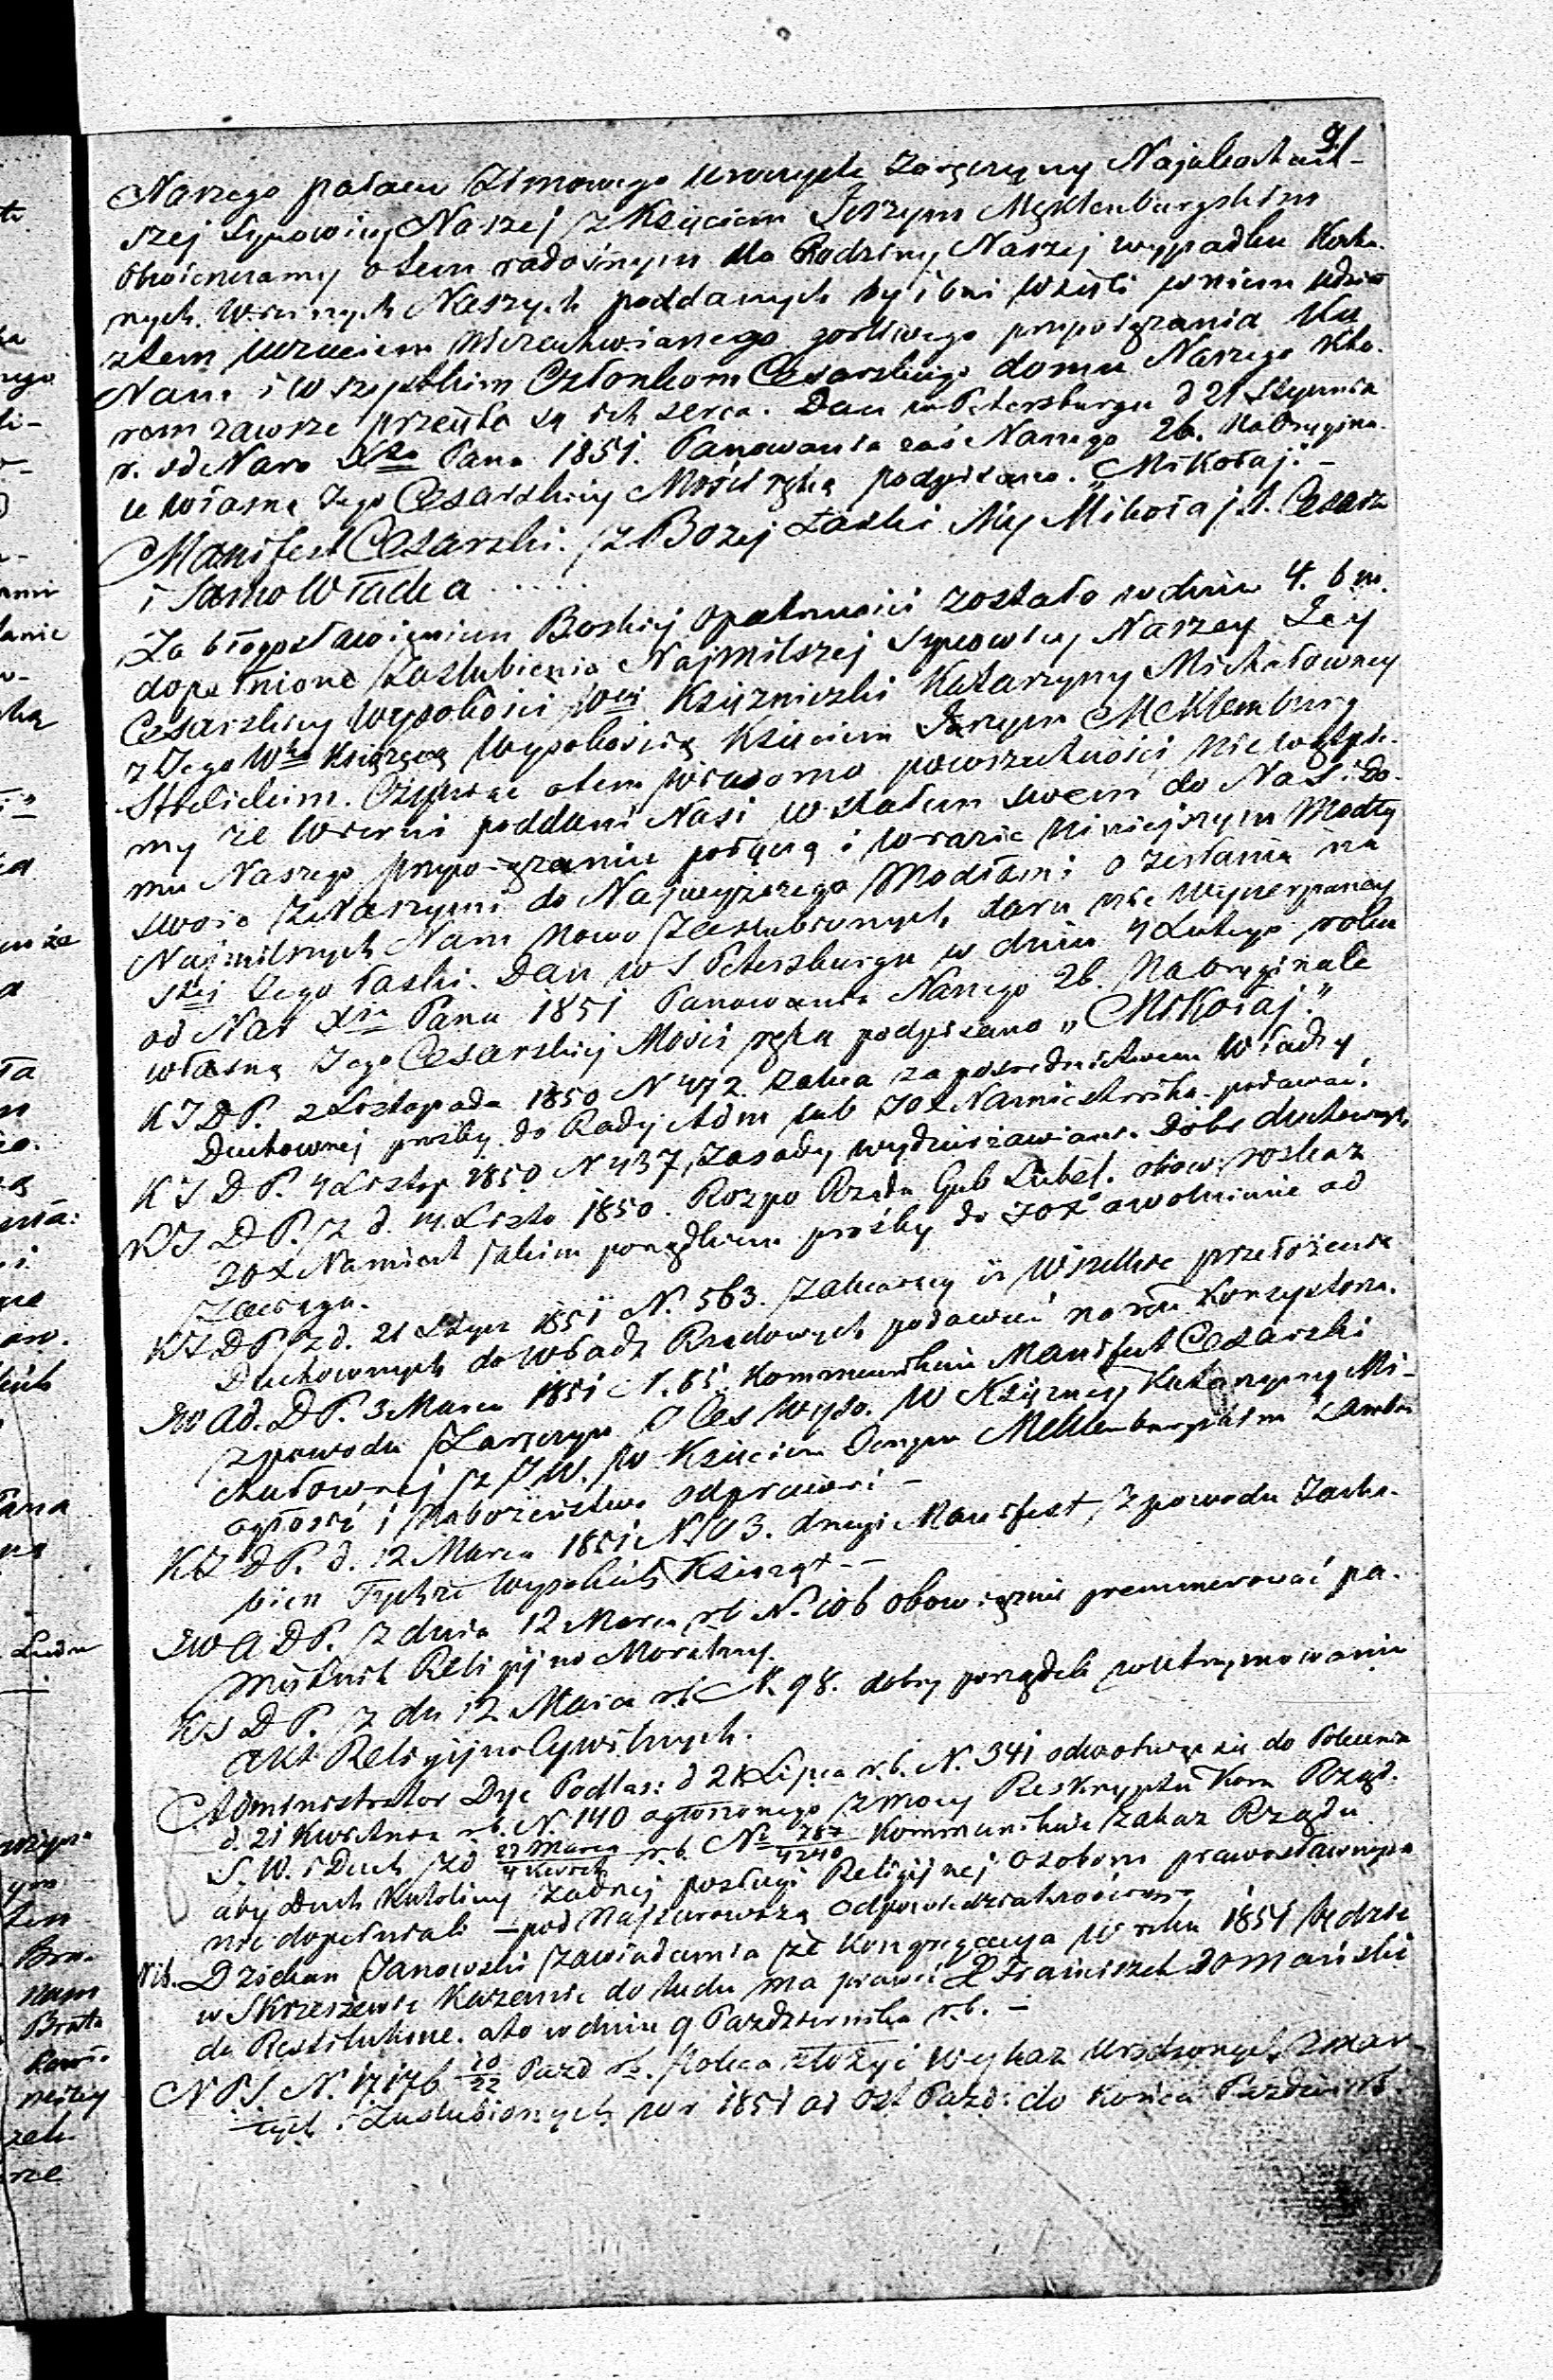 91
Naszego pałacu Zimowego uroczyste zaręczyny Najukochań-
szej Synowicy Naszej z Księciem Jerzym Meklenburgskim
Obwieszczamy o tem radośnym dla Rodziny Naszej wypadku Kocha-
nych wiernych Naszych poddanych by i oni wzięli w niem udział
z tem uczuciem niezachwianego gorliwego przywiązania ku
Nam i wszystkim Członkom Cesarskiego domu Naszego któ-
rem zawsze przejęte są ich serca. Dan w Petersburgu d 21 Stycznia
r. od Naro Xsa Pana 1851. Panowania zaś Naszego 26. Na Orygina-
le własną Jego Cesarskiej Mości ręką podpisano. "Mikołaj." -
Manifest Cesarski. Z Bozej Łaski My Mikołaj I. Cesarz
i Samo Władca .....
Za błogosławieniem Boskiej Opatrzności zostało w dniu 4. b m.
dopełnione Zaslubienie Najmilszej Synowicy Naszey Jey
Cesarskiey Wysokości Wej Księzniczki Katarzyny Michałowney
z Jego Wko Ksiązęcą Wysokością Księciem Jerzym Meklemburg
Strelickim. Czyniąc o tem wiadomo powszechności nie wątpi-
my ze wierni poddani Nasi w stałem swem do Nas i do-
mu Naszego przywiązaniu połączą i w razie niniejszym Modły
swoie z Naszymi do Najwyższego Modłami o zesłanie na
Najmilszych Nam Nowo Zaslubionych daru nie wyczerpaney
stej Jego łaski. Dan w S Petersburgu w dniu 4 Lutego roku
od Nar Xsa Pana 1851 Panowania Naszego 26. Na Oryginale
własną Jego Cesarskiej Mości ręką podpisano "Mikołaj."
K J D P. 2 Listopada 1850 N 472. zaleca za posrednictwem Władzy
Duchownej prożby do Rady Adm lub JOX Namiestnika podawać.
K J D P. 4 Listop 1850 N 437, Zasady wydzierżawiania Dóbr duchownych
K J D P. z d. 14 Listo 1850. Rozpo Rządu Gub Lubel. obow. rozkaz
JOX Namiest jakim porządkiem prożby do JOX o wolnienie od
Zaciągu.
K J D P. z d. 21 Stycz 1851 N. 563. zalecaiący iż Wszelkie przełożenia
Duchownych do Władz Rządowych podawać na ręce Konsystorza.
JW Ad. D P. 3 Marca 1851 N. 85. Kommunikuie Manifest Cesarski
z powodu Zaręczyn J Ces Wyso. W Księzney Katarzyny Mi-
chałownej z J W. W Księciem Jerzym Meklemburgskim z ambo
ogłosić i Nabożeństwo odprawić -
K J D P. d. 12 Marca 1851 N. 103. drugi Manifest z powodu Zaslu-
bien Tychże Wysokich Książąt --
JW A D P. z dnia 12 Marca rb N. 106 obowięznie prenumerować pa-
miętnik Religijno Moralny.
K J D P. z dn 12 Marca rb N. 98. dobry porządek w utrzymowaniu
akt Religijno Cywilnych.
Administrator Dyc Podlas: d 21 Lipca r.b. N. 341 odwołuiąc się do Polecenia
d. 21 Kwietnia rb. N. 140 ogłoszonego z mocy Reskryptu Kom Rząd.
S. W. i Duch z d 23 Marca / 4 Kwiet r.b. No 787/4240 Kommunikuie zakaz Rządu
aby Duch Katoliccy żadnej posługi Religijnej osobom prawosławnym
nie dopełniali - pod Najsurowszą odpowiedzialnością
Nib. Dziekan Janowski zawiadamia że Kongregacya w roku 1851 będzie
w Skrzeszewie Kazanie do ludu ma prawić X Franciszek Domański
de Restitutione. a to w dniu 9 Pazdziernika r.b. -
N P S N. 17176 10/22 Pazd rb. poleca złożyć wykaz urodzonych zmar-
łych i Zaslubionych w r 1851 od Ost Pazd: do końca Pazdziernik